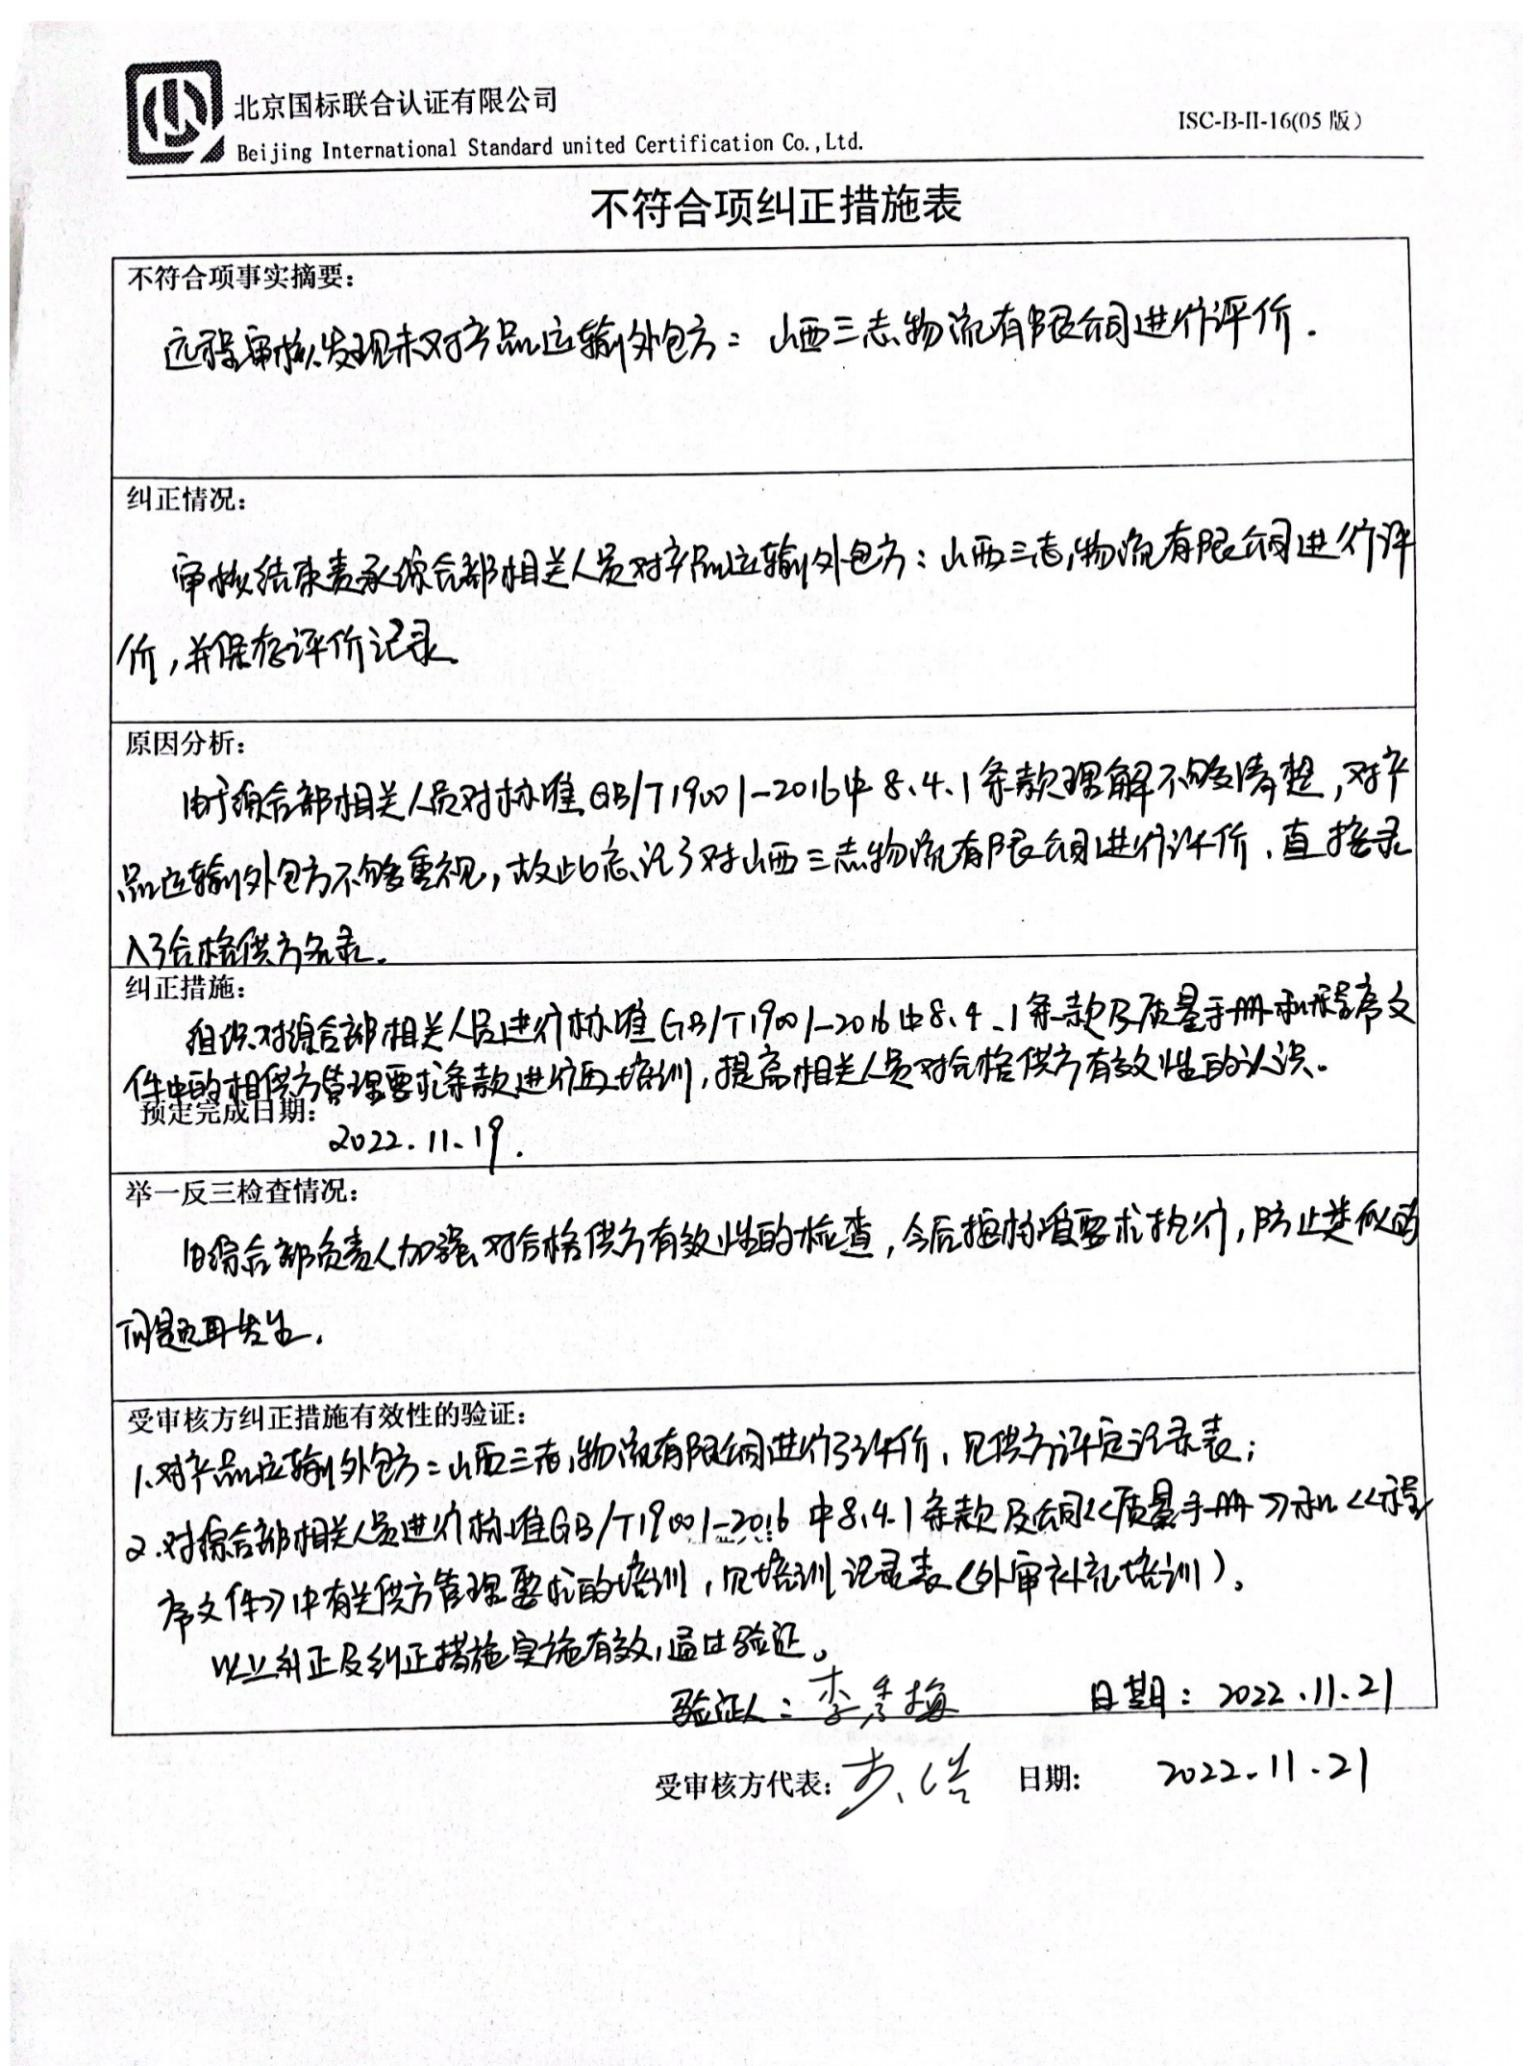 北京国标联合认证有限公司
ISC-B-II-16(05 版)
Beijing International Standard united Certification Co.,Ltd.
不符合项纠正措施表
不符合项事实摘要:
远程审核发现未对产品运输外包方:山西三志物流有限公司进行评价.
纠正情况:
审核结束责承综合部相关人员对产品运输外包方:山西三志物流有限公司进行评
价,并保存评价记录.
原因分析:
由于综合部相关人员对标准GB/T19001-2016中8.4.1条款理解不够清楚,对产
品运输外包方不够重视,故此忘记了对山西三志物流有限公司进行评价,直接录
入了合格供方名录.
纠正措施:
组织对综合部相关人员进行标准GB/T19001-2016中8.4.1条款及质量手册和程序文
件中的相供方管理要求条款进行再培训,提高相关人员对合格供方有效性的认识。
预定完成日期:
2022.11.19.
举一反三检查情况:
由综合部负责人加强对合格供方有效性的检查,今后按标准要求执行,防止类似的
问题再发生.
受审核方纠正措施有效性的验证:
1.对产品运输外包方:山西三志物流有限公司进行了评价,见供方评定记录表;
2.对综合部相关人员进行标准GB/T19001-2016中8.4.1条款及公司《质量手册》和《程
序文件》中有关供方管理要求的培训,见培训记录表(外审补充培训)。
以上纠正及纠正措施实施有效,通过验证。
验证人:李秀梅 日期:2022.11.21
受审核方代表: 日期: 2022.11.21